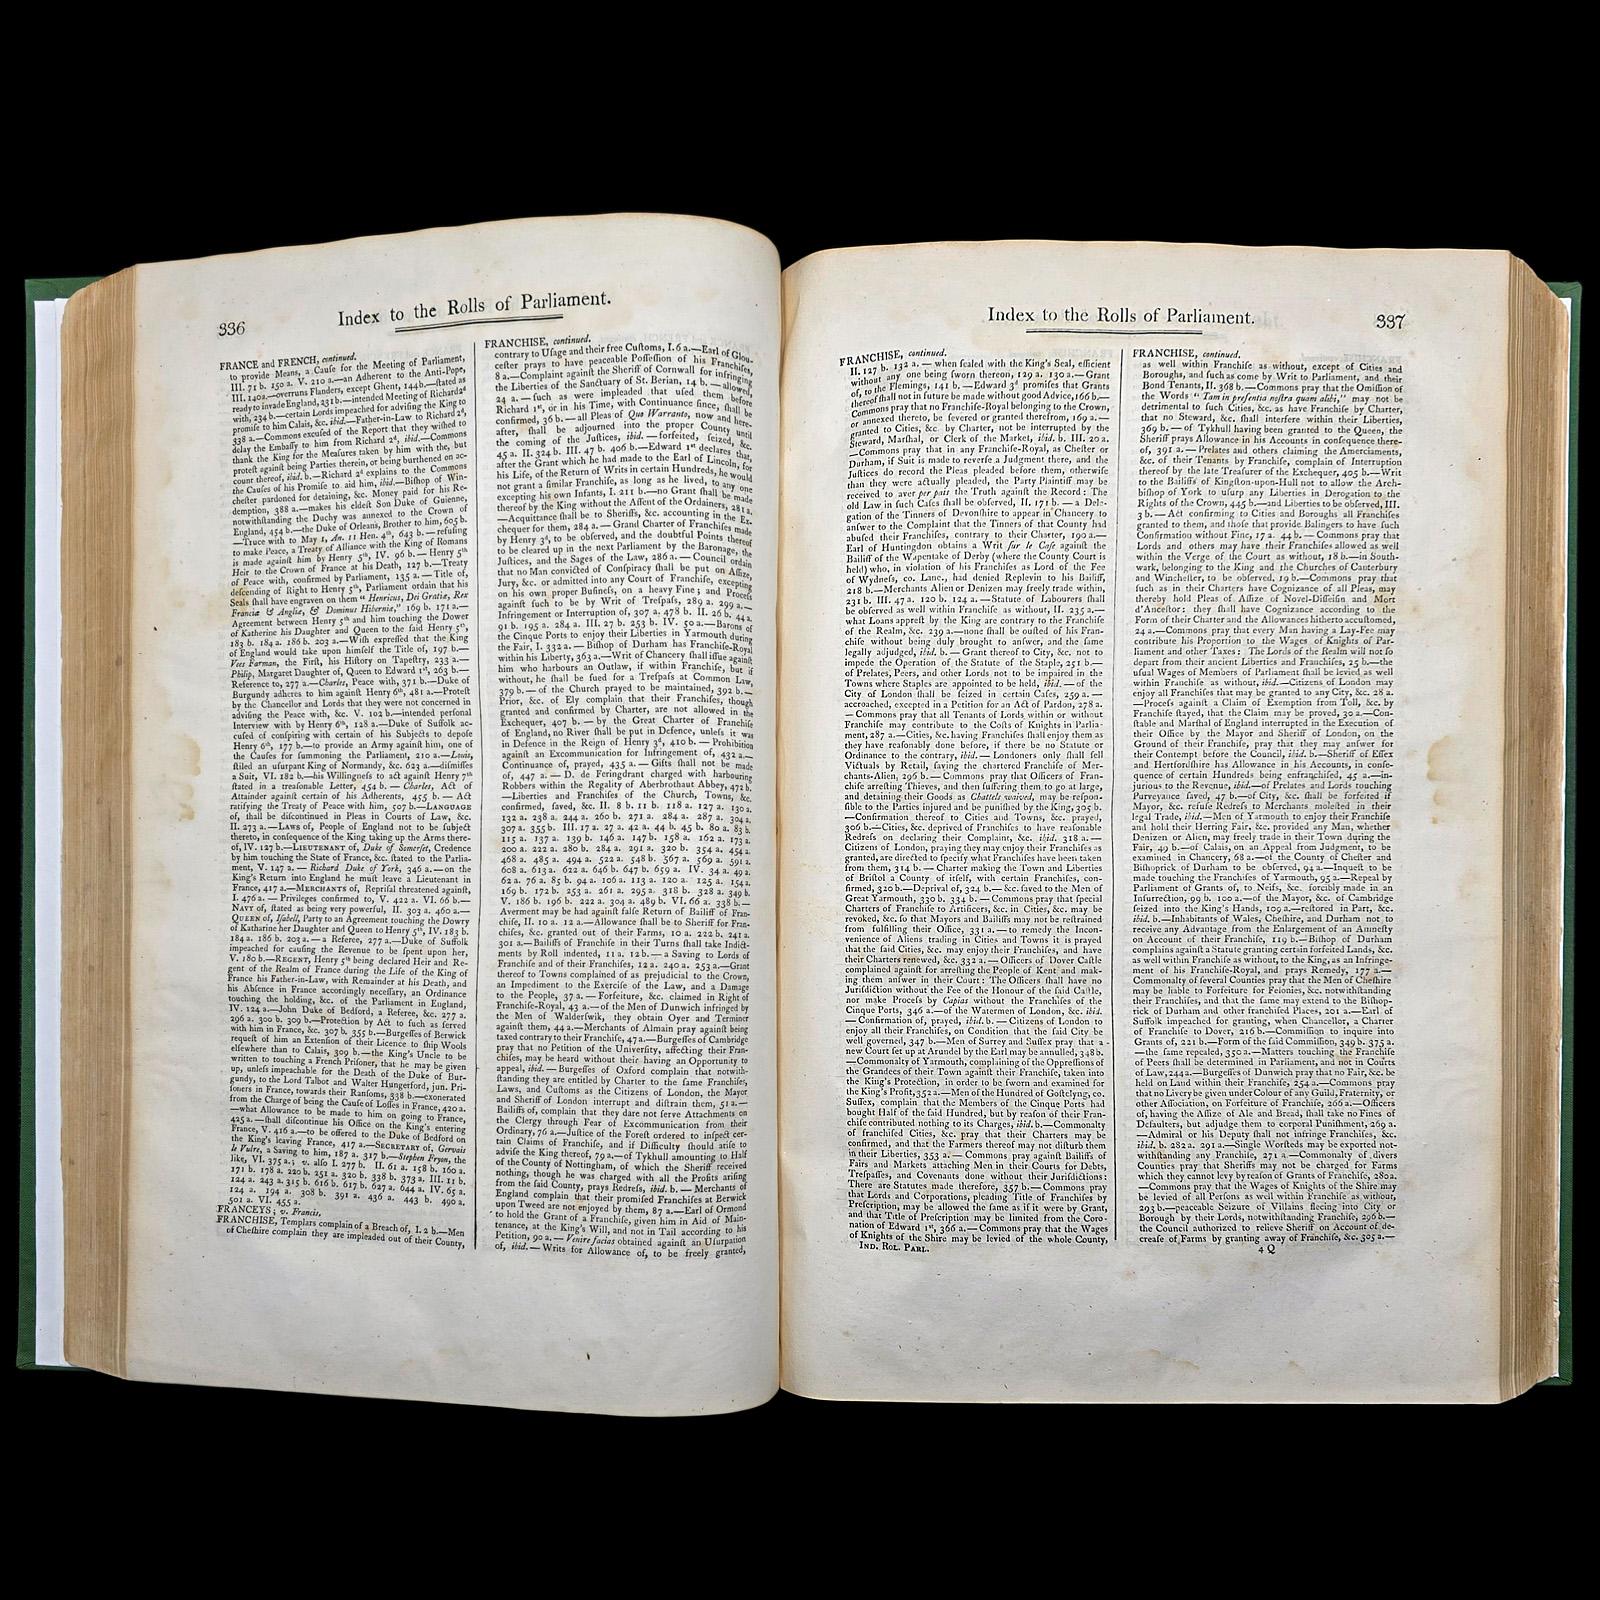 336
Index to the Rolls of Parliament.
FRANCE and FRENCH, continued.
to provide Means, a Cauſe for the Meeting of Parliament,
III. 71 b. 150 a. V. 210 a.—an Adherent to the Anti-Pope,
III. 140a.—overruns Flanders, except Ghent, 144b.—ſtated as
ready to invade England, 231 b.—intended Meeting of Richard 2ᵈ
with, 234 b.—certain Lords impeached for adviſing the King to
promiſe to him Calais, &c. ibid.—Father-in-Law to Richard 2ᵈ,
338 a.—Commons excuſed of the Report that they wiſhed to
delay the Embaſſy to him from Richard 2ᵈ, ibid.—Commons
thank the King for the Meaſures taken by him with the, but
proteſt againſt being Parties therein, or being burthened on ac-
count thereof, ibid. b.—Richard 2ᵈ explains to the Commons
the Cauſes of his Promiſe to aid him, ibid.—Biſhop of Win-
cheſter pardoned for detaining, &c. Money paid for his Re-
demption, 388 a.—makes his eldeſt Son Duke of Guienne,
notwithſtanding the Duchy was annexed to the Crown of
England, 454 b.—the Duke of Orleans, Brother to him, 605 b.
—Truce with to May 1, An. 11 Hen. 4ᵗʰ, 643 b.—refuſing
to make Peace, a Treaty of Alliance with the King of Romans
is made againſt him by Henry 5ᵗʰ, IV. 96 b.—Henry 5ᵗʰ
Heir to the Crown of France at his Death, 127 b.—Treaty
of Peace with, confirmed by Parliament, 135 a.—Title of,
deſcending of Right to Henry 5ᵗʰ, Parliament ordain that his
Seals ſhall have engraven on them "Henricus, Dei Gratiæ, Rex
Franciæ & Angliæ, & Dominus Hiberniæ," 169 b. 171 a.—
Agreement between Henry 5ᵗʰ and him touching the Dower
of Katherine his Daughter and Queen to the ſaid Henry 5ᵗʰ,
183 b. 184 a. 186 b. 203 a.—Wiſh expreſſed that the King
of England would take upon himſelf the Title of, 197 b.—
Vees Farman, the Firſt, his Hiſtory on Tapeſtry, 233 a.—
Philip, Margaret Daughter of, Queen to Edward 1ˢᵗ, 263 b.—
Reference to, 277 a.—Charles, Peace with, 371 b.—Duke of
Burgundy adheres to him againſt Henry 6ᵗʰ, 481 a.—Proteſt
by the Chancellor and Lords that they were not concerned in
adviſing the Peace with, &c. V. 102 b.—intended perſonal
Interview with by Henry 6ᵗʰ, 128 a.—Duke of Suffolk ac-
cuſed of conſpiring with certain of his Subjects to depoſe
Henry 6ᵗʰ, 177 b.—to provide an Army againſt him, one of
the Cauſes for ſummoning the Parliament, 210 a.—Louis,
ſtiled an uſurpant King of Normandy, &c. 623 a.—diſmiſſes
a Suit, VI. 182 b.—his Willingneſs to act againſt Henry 7ᵗʰ
ſtated in a treaſonable Letter, 454 b.—Charles, Act of
Attainder againſt certain of his Adherents, 455 b.—Act
ratifying the Treaty of Peace with him, 507 b.—LANGUAGE
of, ſhall be diſcontinued in Pleas in Courts of Law, &c.
II. 273 a.—LAWS of, People of England not to be ſubject
thereto, in conſequence of the King taking up the Arms there-
of, IV. 127 b.—LIEUTENANT of, Duke of Somerſet, Credence
by him touching the State of France, &c. ſtated to the Parlia-
ment, V. 147 a.—Richard Duke of York, 346 a.—on the
King's Return into England he muſt leave a Lieutenant in
France, 417 a.—MERCHANTS of, Repriſal threatened againſt,
I. 476 a.—Privileges confirmed to, V. 422 a. VI. 66 b.—
NAVY of, ſtated as being very powerful, II. 303 a. 460 a.—
QUEEN of, Iſabell, Party to an Agreement touching the Dowry
of Katharine her Daughter and Queen to Henry 5ᵗʰ, IV. 183 b.
184 a. 186 b. 203 a.—a Referee, 277 a.—Duke of Suffolk
impeached for cauſing the Revenue to be ſpent upon her,
V. 180 b.—REGENT, Henry 5ᵗʰ being declared Heir and Re-
gent of the Realm of France during the Life of the King of
France his Father-in-Law, with Remainder at his Death, and
his Abſence in France accordingly neceſſary, an Ordinance
touching the holding, &c. of the Parliament in England,
IV. 124 a.—John Duke of Bedford, a Referee, &c. 277 a.
296 a. 300 b. 309 b.—Protection by Act to ſuch as ſerved
with him in France, &c. 307 b. 355 b.—Burgeſſes of Berwick
requeſt of him an Extenſion of their Licence to ſhip Wools
elſewhere than to Calais, 309 b.—the King's Uncle to be
written to touching a French Priſoner, that he may be given
up, unleſs impeachable for the Death of the Duke of Bur-
gundy, to the Lord Talbot and Walter Hungerford, jun. Pri-
ſoners in France, towards their Ranſoms, 338 b.—exonerated
from the Charge of being the Cauſe of Loſſes in France, 420 a.
—what Allowance to be made to him on going to France,
425 a.—ſhall diſcontinue his Office on the King's entering
France, V. 416 a.—to be offered to the Duke of Bedford on
the King's leaving France, 417 a.—SECRETARY of, Gervais
le Vulre, a Saving to him, 187 a. 317 b.—Stephen Fryon, the
like, VI. 375 a.; v. alſo I. 277 b. II. 61 a. 158 b. 160 a.
171 b. 178 a. 220 b. 251 a. 320 b. 338 b. 373 a. III. 11 b.
124 a. 243 a. 315 b. 616 b. 617 b. 627 a. 644 a. IV. 65 a.
124 a. 194 a. 308 b. 391 a. 436 a. 443 b. 490 a.
501 a. VI. 455 a.
FRANCEYS; v. Francis.
FRANCHISE, Templars complain of a Breach of, I. 2 b.—Men
of Cheſhire complain they are impleaded out of their County,
FRANCHISE, continued.
contrary to Uſage and their free Cuſtoms, I. 6 a.—Earl of Glou-
ceſter prays to have peaceable Poſſeſſion of his Franchiſes,
8 a.—Complaint againſt the Sheriff of Cornwall for infringing
the Liberties of the Sanctuary of St. Berian, 14 b.—allowed,
24 a.—ſuch as were impleaded that uſed them before
Richard 1ˢᵗ, or in his Time, with Continuance ſince, ſhall be
confirmed, 36 b.—all Pleas of Quo Warranto, now and here-
after, ſhall be adjourned into the proper County until
the coming of the Juſtices, ibid.—forfeited, ſeized, &c.
45 a. II. 324 b. III. 47 b. 406 b.—Edward 1ˢᵗ declares that,
after the Grant which he had made to the Earl of Lincoln, for
his Life, of the Return of Writs in certain Hundreds, he would
not grant a ſimilar Franchiſe, as long as he lived, to any one
excepting his own Infants, I. 211 b.—no Grant ſhall be made
thereof by the King without the Aſſent of the Ordainers, 281 a.
—Acquittance ſhall be to Sheriffs, &c. accounting in the Ex-
chequer for them, 284 a.—Grand Charter of Franchiſes made
by Henry 3ᵈ, to be obſerved, and the doubtful Points thereof
to be cleared up in the next Parliament by the Baronage, the
Juſtices, and the Sages of the Law, 286 a.—Council ordain
that no Man convicted of Conſpiracy ſhall be put on Aſſize,
Jury, &c. or admitted into any Court of Franchiſe, excepting
on his own proper Buſineſs, on a heavy Fine; and Proceſs
againſt ſuch to be by Writ of Treſpaſs, 289 a. 299 a.—
Infringement or Interruption of, 307 a. 478 b. II. 26 b. 44 a.
91 b. 195 a. 284 a. III. 27 b. 253 b. IV. 50 a.—Barons of
the Cinque Ports to enjoy their Liberties in Yarmouth during
the Fair, I. 332 a.—Biſhop of Durham has Franchiſe-Royal
within his Liberty, 363 a.—Writ of Chancery ſhall iſſue againſt
him who harbours an Outlaw, if within Franchiſe, but if
without, he ſhall be ſued for a Treſpaſs at Common Law,
379 b.—of the Church prayed to be maintained, 392 b.—
Prior, &c. of Ely complain that their Franchiſes, though
granted and confirmed by Charter, are not allowed in the
Exchequer, 407 b.—by the Great Charter of Franchiſe
of England, no River ſhall be put in Defence, unleſs it was
in Defence in the Reign of Henry 3ᵈ, 410 b.—Prohibition
againſt an Excommunication for Infringement of, 432 a.—
Continuance of, prayed, 435 a.—Gifts ſhall not be made
of, 447 a.—D. de Feringdrant charged with harbouring
Robbers within the Regality of Aberbrothaut Abbey, 472 b.
—Liberties and Franchiſes of the Church, Towns, &c.
confirmed, ſaved, &c. II. 8 b. 11 b. 118 a. 127 a. 130 a.
132 a. 238 a. 244 a. 260 b. 271 a. 284 a. 287 a. 304 a.
307 a. 355 b. III. 17 a. 27 a. 42 a. 44 b. 45 b. 80 a. 83 b.
115 a. 137 a. 139 b. 146 a. 147 b. 158 a. 162 a. 173 a.
200 a. 222 a. 280 b. 284 a. 291 a. 320 b. 354 a. 454 a.
468 a. 485 a. 494 a. 522 a. 548 b. 567 a. 569 a. 591 a.
608 a. 613 a. 622 a. 646 b. 647 b. 659 a. IV. 34 a. 49 a.
62 a. 76 a. 85 b. 94 a. 106 a. 113 a. 120 a. 125 a. 154 a.
169 b. 172 b. 253 a. 261 a. 295 a. 318 b. 328 a. 349 b.
V. 186 b. 196 b. 222 a. 304 a. 489 b. VI. 66 a. 338 b.—
Averment may be had againſt falſe Return of Bailiff of Fran-
chiſe, II. 10 a. 12 a.—Allowance ſhall be to Sheriff for Fran-
chiſes, &c. granted out of their Farms, 10 a. 222 b. 241 a.
301 a.—Bailiffs of Franchiſe in their Turns ſhall take Indict-
ments by Roll indented, 11 a. 12 b.—a Saving to Lords of
Franchiſe and of their Franchiſes, 12 a. 240 a. 253 a.—Grant
thereof to Towns complained of as prejudicial to the Crown,
an Impediment to the Exerciſe of the Law, and a Damage
to the People, 37 a.—Forfeiture, &c. claimed in Right of
Franchiſe-Royal, 43 a.—of the Men of Dunwich infringed by
the Men of Walderſwik, they obtain Oyer and Terminer
againſt them, 44 a.—Merchants of Almain pray againſt being
taxed contrary to their Franchiſe, 47 a.—Burgeſſes of Cambridge
pray that no Petition of the Univerſity, affecting their Fran-
chiſes, may be heard without their having an Opportunity to
appeal, ibid.—Burgeſſes of Oxford complain that notwith-
ſtanding they are entitled by Charter to the ſame Franchiſes,
Laws, and Cuſtoms as the Citizens of London, the Mayor
and Sheriff of London interrupt and diſtrain them, 51 a.—
Bailiffs of, complain that they dare not ſerve Attachments on
the Clergy through Fear of Excommunication from their
Ordinary, 76 a.—Juſtice of the Foreſt ordered to inſpect cer-
tain Claims of Franchiſe, and if Difficulty ſhould ariſe to
adviſe the King thereof, 79 a.—of Tykhull amounting to Half
of the County of Nottingham, of which the Sheriff received
nothing, though he was charged with all the Profits ariſing
from the ſaid County, prays Redreſs, ibid. b.—Merchants of
England complain that their promiſed Franchiſes at Berwick
upon Tweed are not enjoyed by them, 87 a.—Earl of Ormond
to hold the Grant of a Franchiſe, given him in Aid of Main-
tenance, at the King's Will, and not in Tail according to his
Petition, 90 a.—Venire facias obtained againſt an Uſurpation
of, ibid.—Writs for Allowance of, to be freely granted,
Index to the Rolls of Parliament.
337
FRANCHISE, continued.
II. 127 b. 132 a.—when ſealed with the King's Seal, efficient
without any one being ſworn thereon, 129 a. 130 a.—Grant
of, to the Flemings, 141 b.—Edward 3ᵈ promiſes that Grants
thereof ſhall not in future be made without good Advice, 166 b.—
Commons pray that no Franchiſe-Royal belonging to the Crown,
or annexed thereto, be ſevered or granted therefrom, 169 a.—
granted to Cities, &c. by Charter, not be interrupted by the
Steward, Marſhal, or Clerk of the Market, ibid. b. III. 20 a.
—Commons pray that in any Franchiſe-Royal, as Cheſter or
Durham, if Suit is made to reverſe a Judgment there, and the
Juſtices do record the Pleas pleaded before them, otherwiſe
than they were actually pleaded, the Party Plaintiff may be
received to aver per pais the Truth againſt the Record: The
old Law in ſuch Caſes ſhall be obſerved, II. 171 b.—a Dele-
gation of the Tinners of Devonſhire to appear in Chancery to
anſwer to the Complaint that the Tinners of that County had
abuſed their Franchiſes, contrary to their Charter, 190 a.—
Earl of Huntingdon obtains a Writ ſur le Caſe againſt the
Bailiff of the Wapentake of Derby (where the County Court is
held) who, in violation of his Franchiſes as Lord of the Fee
of Wydneſs, co. Lanc., had denied Replevin to his Bailiff,
218 b.—Merchants Alien or Denizen may freely trade within,
231 b. III. 47 a. 120 b. 124 a.—Statute of Labourers ſhall
be obſerved as well within Franchiſe as without, II. 235 a.—
what Loans appreſt by the King are contrary to the Franchiſe
of the Realm, &c. 239 a.—none ſhall be ouſted of his Fran-
chiſe without being duly brought to anſwer, and the ſame
legally adjudged, ibid. b.—Grant thereof to City, &c. not to
impede the Operation of the Statute of the Staple, 251 b.—
of Prelates, Peers, and other Lords not to be impaired in the
Towns where Staples are appointed to be held, ibid.—of the
City of London ſhall be ſeized in certain Caſes, 259 a.—
accroached, excepted in a Petition for an Act of Pardon, 278 a.
—Commons pray that all Tenants of Lords within or without
Franchiſe may contribute to the Coſts of Knights in Parlia-
ment, 287 a.—Cities, &c. having Franchiſes ſhall enjoy them as
they have reaſonably done before, if there be no Statute or
Ordinance to the contrary, ibid.—Londoners only ſhall ſell
Victuals by Retail, ſaving the chartered Franchiſe of Mer-
chants-Alien, 296 b.—Commons pray that Officers of Fran-
chiſe arreſting Thieves, and then ſuffering them to go at large,
and detaining their Goods as Chattels waived, may be reſpon-
ſible to the Parties injured and be puniſhed by the King, 305 b.
—Confirmation thereof to Cities and Towns, &c. prayed,
306 b.—Cities, &c. deprived of Franchiſes to have reaſonable
Redreſs on declaring their Complaint, &c. ibid. 318 a.—
Citizens of London, praying they may enjoy their Franchiſes as
granted, are directed to ſpecify what Franchiſes have been taken
from them, 314 b.—Charter making the Town and Liberties
of Briſtol a County of itſelf, with certain Franchiſes, con-
firmed, 320 b.—Deprival of, 324 b.—&c. ſaved to the Men of
Great Yarmouth, 330 b. 334 b.—Commons pray that ſpecial
Charters of Franchiſe to Artificers, &c. in Cities, &c. may be
revoked, &c. ſo that Mayors and Bailiffs may not be reſtrained
from fulfilling their Office, 331 a.—to remedy the Incon-
venience of Aliens trading in Cities and Towns it is prayed
that the ſaid Cities, &c. may enjoy their Franchiſes, and have
their Charters renewed, &c. 332 a.—Officers of Dover Caſtle
complained againſt for arreſting the People of Kent and mak-
ing them anſwer in their Court: The Officers ſhall have no
Juriſdiction without the Fee of the Honour of the ſaid Caſtle,
nor make Proceſs by Capias without the Franchiſes of the
Cinque Ports, 346 a.—of the Watermen of London, &c. ibid.
—Confirmation of, prayed, ibid. b.—Citizens of London to
enjoy all their Franchiſes, on Condition that the ſaid City be
well governed, 347 b.—Men of Surrey and Suſſex pray that a
new Court ſet up at Arundel by the Earl may be annulled, 348 b.
—Commonalty of Yarmouth, complaining of the Oppreſſions of
the Grandees of their Town againſt their Franchiſe, taken into
the King's Protection, in order to be ſworn and examined for
the King's Profit, 352 a.—Men of the Hundred of Goſtelyng, co.
Suſſex, complain that the Members of the Cinque Ports had
bought Half of the ſaid Hundred, but by reaſon of their Fran-
chiſe contributed nothing to its Charges, ibid. b.—Commonalty
of franchiſed Cities, &c. pray that their Charters may be
confirmed, and that the Farmers thereof may not diſturb them
in their Liberties, 353 a.—Commons pray againſt Bailiffs of
Fairs and Markets attaching Men in their Courts for Debts,
Treſpaſſes, and Covenants done without their Juriſdictions:
There are Statutes made therefore, 357 b.—Commons pray
that Lords and Corporations, pleading Title of Franchiſes by
Preſcription, may be allowed the ſame as if it were by Grant,
and that Title of Preſcription may be limited from the Coro-
nation of Edward 1ˢᵗ, 366 a.—Commons pray that the Wages
of Knights of the Shire may be levied of the whole County,
IND. ROL. PARL.
FRANCHISE, continued.
as well within Franchiſe as without, except of Cities and
Boroughs, and ſuch as come by Writ to Parliament, and their
Bond Tenants, II. 368 b.—Commons pray that the Omiſſion of
the Words "Tam in preſentia noſtra quam alibi," may not be
detrimental to ſuch Cities, &c. as have Franchiſe by Charter,
that no Steward, &c. ſhall interfere within their Liberties,
369 b.—of Tykhull having been granted to the Queen, the
Sheriff prays Allowance in his Accounts in conſequence there-
of, 391 a.—Prelates and others claiming the Amerciaments,
&c. of their Tenants by Franchiſe, complain of Interruption
thereof by the late Treaſurer of the Exchequer, 405 b.—Writ
to the Bailiffs of Kingſton-upon-Hull not to allow the Arch-
biſhop of York to uſurp any Liberties in Derogation to the
Rights of the Crown, 445 b.—and Liberties to be obſerved, III.
3 b.—Act confirming to Cities and Boroughs all Franchiſes
granted to them, and thoſe that provide Balingers to have ſuch
Confirmation without Fine, 17 a. 44 b.—Commons pray that
Lords and others may have their Franchiſes allowed as well
within the Verge of the Court as without, 18 b.—in South-
wark, belonging to the King and the Churches of Canterbury
and Wincheſter, to be obſerved. 19 b.—Commons pray that
ſuch as in their Charters have Cognizance of all Pleas, may
thereby hold Pleas of Aſſize of Novel-Diſſeiſin and Mort
d'Anceſtor: they ſhall have Cognizance according to the
Form of their Charter and the Allowances hitherto accuſtomed,
24 a.—Commons pray that every Man having a Lay-Fee may
contribute his Proportion to the Wages of Knights of Par-
liament and other Taxes: The Lords of the Realm will not ſo
depart from their ancient Liberties and Franchiſes, 25 b.—the
uſual Wages of Members of Parliament ſhall be levied as well
within Franchiſe as without, ibid.—Citizens of London may
enjoy all Franchiſes that may be granted to any City, &c. 28 a.
—Proceſs againſt a Claim of Exemption from Toll, &c. by
Franchiſe ſtayed, that the Claim may be proved, 30 a.—Con-
ſtable and Marſhal of England interrupted in the Execution of
their Office by the Mayor and Sheriff of London, on the
Ground of their Franchiſe, pray that they may anſwer for
their Contempt before the Council, ibid. b.—Sheriff of Eſſex
and Hertfordſhire has Allowance in his Accounts, in conſe-
quence of certain Hundreds being enfranchiſed, 45 a.—in-
jurious to the Revenue, ibid.—of Prelates and Lords touching
Purveyance ſaved, 47 b.—of City, &c. ſhall be forfeited if
Mayor, &c. refuſe Redreſs to Merchants moleſted in their
legal Trade, ibid.—Men of Yarmouth to enjoy their Franchiſe
and hold their Herring Fair, &c. provided any Man, whether
Denizen or Alien, may freely trade in their Town during the
Fair, 49 b.—of Calais, on an Appeal from Judgment, to be
examined in Chancery, 68 a.—of the County of Cheſter and
Biſhoprick of Durham to be obſerved, 94 a.—Inqueſt to be
made touching the Franchiſes of Yarmouth, 95 a.—Repeal by
Parliament of Grants of, to Neifs, &c. forcibly made in an
Inſurrection, 99 b. 100 a.—of the Mayor, &c. of Cambridge
ſeized into the King's Hands, 109 a.—reſtored in Part, &c.
ibid. b.—Inhabitants of Wales, Cheſhire, and Durham not to
receive any Advantage from the Enlargement of an Amneſty
on Account of their Franchiſe, 119 b.—Biſhop of Durham
complains againſt a Statute granting certain forfeited Lands, &c.
as well within Franchiſe as without, to the King, as an Infringe-
ment of his Franchiſe-Royal, and prays Remedy, 177 a.—
Commonalty of ſeveral Counties pray that the Men of Cheſhire
may be liable to Forfeiture for Felonies, &c. notwithſtanding
their Franchiſes, and that the ſame may extend to the Biſhop-
rick of Durham and other franchiſed Places, 201 a.—Earl of
Suffolk impeached for granting, when Chancellor, a Charter
of Franchiſe to Dover, 216 b.—Commiſſion to inquire into
Grants of, 221 b.—Form of the ſaid Commiſſion, 349 b. 375 a.
—the ſame repealed, 350 a.—Matters touching the Franchiſe
of Peers ſhall be determined in Parliament, and not in Courts
of Law, 244 a.—Burgeſſes of Dunwich pray that no Fair, &c. be
held on Land within their Franchiſe, 254 a.—Commons pray
that no Livery be given under Colour of any Guild, Fraternity, or
other Aſſociation, on Forfeiture of Franchiſe, 266 a.—Officers
of, having the Aſſize of Ale and Bread, ſhall take no Fines of
Defaulters, but adjudge them to corporal Puniſhment, 269 a.
—Admiral or his Deputy ſhall not infringe Franchiſes, &c.
ibid. b. 282 a. 291 a.—Single Worſteds may be exported not-
withſtanding any Franchiſe, 271 a.—Commonalty of divers
Counties pray that Sheriffs may not be charged for Farms
which they cannot levy by reaſon of Grants of Franchiſe, 280 a.
—Commons pray that the Wages of Knights of the Shire may
be levied of all Perſons as well within Franchiſe as without,
293 b.—peaceable Seizure of Villains fleeing into City or
Borough by their Lords, notwithſtanding Franchiſe, 296 b.—
the Council authorized to relieve Sheriff on Account of de-
creaſe of Farms by granting away of Franchiſe, &c. 305 a.—
4 Q